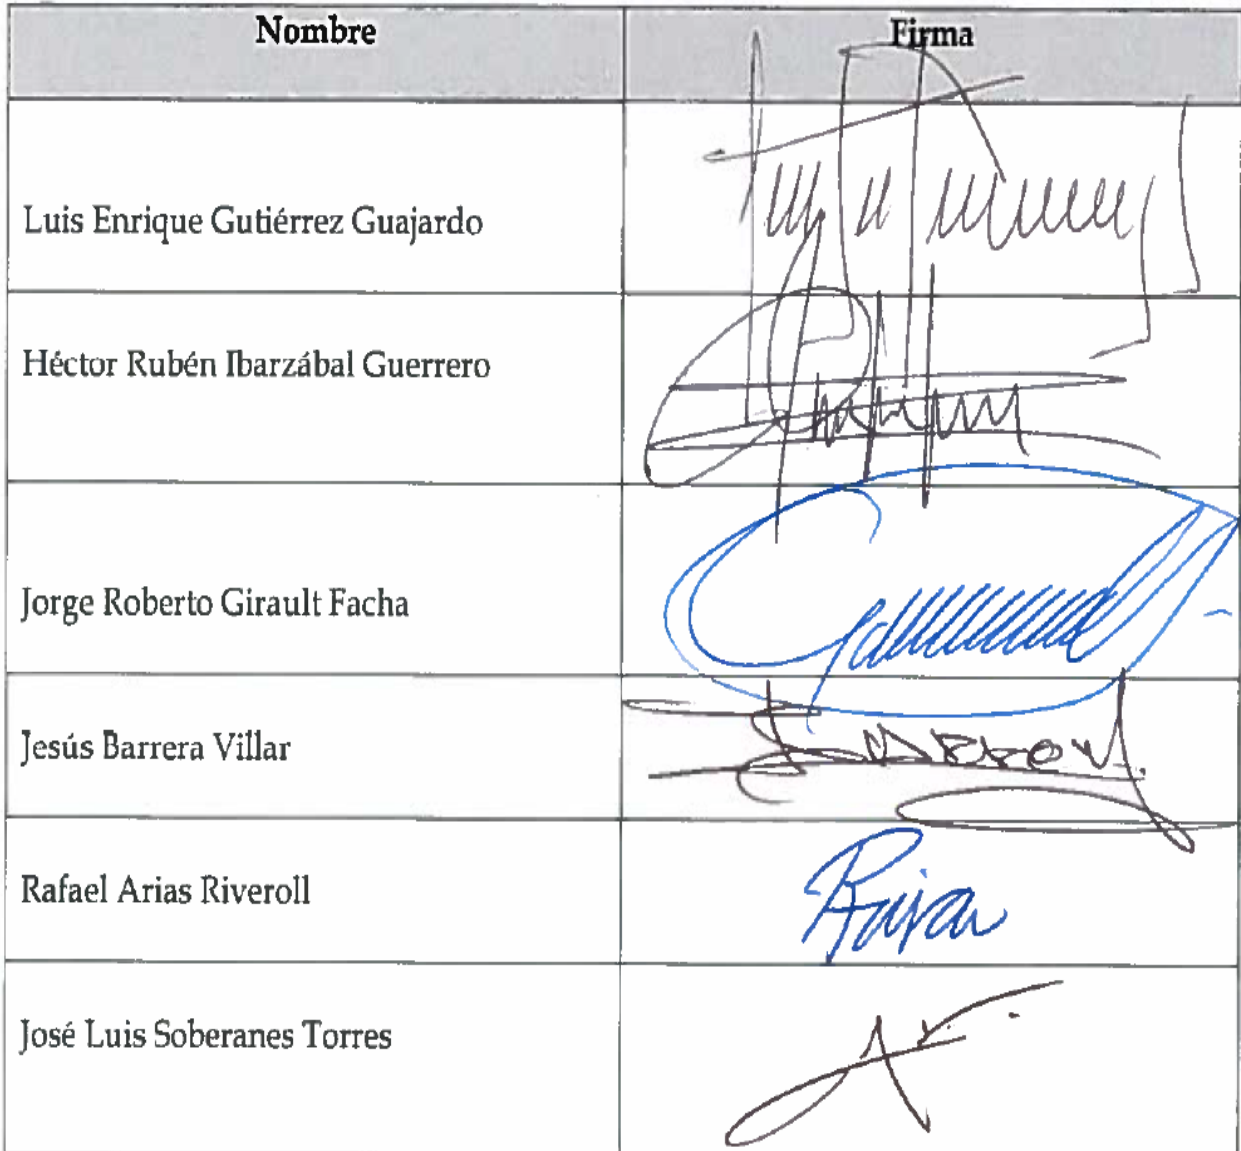 Nombre Firma
Luis Enrique Gutiérrez Guajardo
Héctor Rubén Ibarzábal Guerrero
Jorge Roberto Girault Facha
Jesús Barrera Villar
Rafael Arias Riveroll
José Luis Soberanes Torres